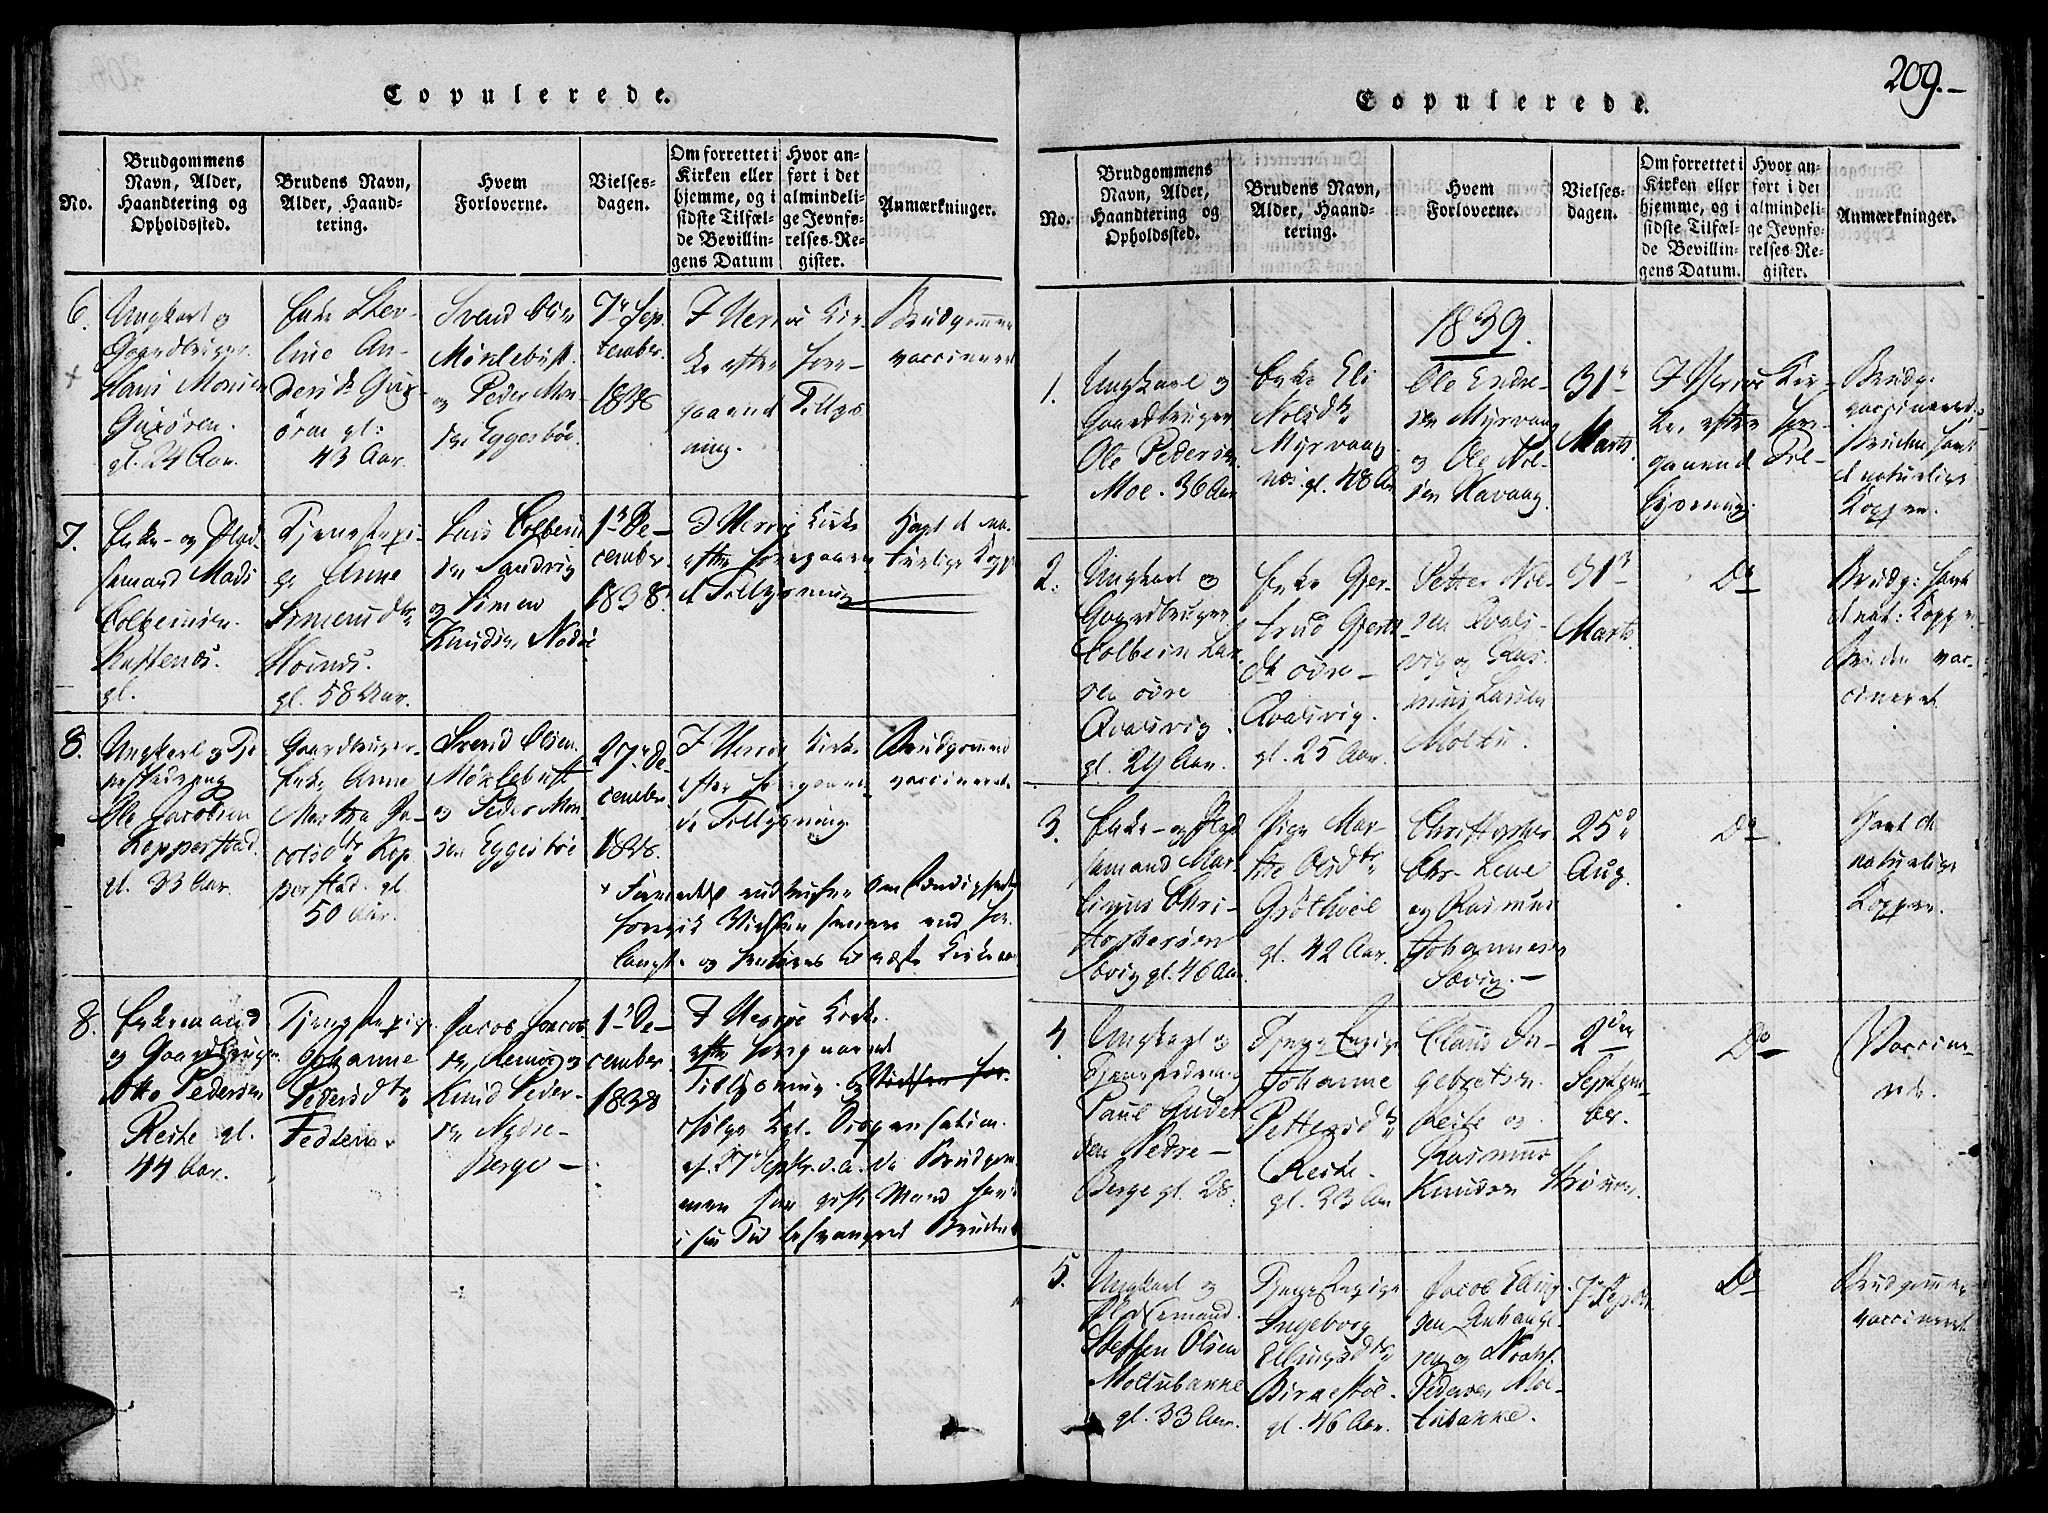 209.-
Copulerede.
No.
Brudgommens
Navn, Alder,
Haandtering og
Opholdssted.
Brudens Navn,
Alder, Haand-
tering.
Hvem
Forloverne.
Vielses-
dagen.
Om forrettet i
Kirken eller
hjemme, og i
sidste Tilfæl-
de Bevillin-
gens Datum
Hvor an-
ført i det
almindeli-
ge Jevnfø-
relses-Re-
gister.
Anmærkninger.
6.
Ungkarl og
Gaardbruger
Hans Monsen
gl. 24 Aar.
Enke
43 Aar.
Svend Olsen
Möklebust
og Peder Mon-
sen Eggesböe
7de Sep-
tember
1838
I Herröe Kir-
ke efter fore-
gaaend Tillys-
ning.
Brudgommen
vaccineret
7.
Enke- og Plad-
semand Mads
Colbeinsen
gl.
Tjenestepi-
ge Anne
Simensdtr
gl. 58 Aar.
Lars Colbein-
sen Sandvig
og Simen
Knudsen
1ste De-
cember
1838.
I Herröe Kirke
efter foregaaen-
de Tillysning
Havt de na-
turlige Kopper
8.
Ungkarl og Tje-
Ole Jacobsen
Kopperstad
gl. 33 Aar.
Gaardbruger-
Enke Anne
Martha Ja-
cobsdtr Kop-
perstad gl.
50 Aar.
Svend Olsen
Möklebust
og Peder Mon-
sen Eggesböe
27de De-
cember
1838.
I Herröe Kirke
efter foregaaen-
de Tillysning.
Brudgommen
vaccineret
8.
Enkemand
og Gaardbruger
Otto Pedersen
Reite gl.
44 Aar.
Tjenestepige
Johanne
Pedersdtr
Jacob Jacob-
sen Remöe og
Knud Peder-
sen Nedre-
Berge -
1ste De-
cember
1838
I Herröe Kirke
efter foregaaende
Tillysning og
ifölge Kgl. Dispensation
af 27de Septbr. d. a. da Brudgom-
men som gift Mand havde
i sin Tid besvangret Bruden
Copulerede.
No.
Brudgommens
Navn, Alder,
Haandtering og
Opholdssted.
Brudens Navn,
Alder, Haand-
tering.
Hvem
Forloverne.
Vielses-
dagen.
Om forrettet i
Kirken eller
hjemme, og i
sidste Tilfæl-
de Bevillin-
gens Datum.
Hvor an-
ført i det
almindeli-
ge Jevnfø-
relses-Re-
gister.
Anmærkninger.
1839.
1.
Ungkarl og
Gaardbruger
Ole Pedersen
Moe. 36 Aar
Enke Eli
Nilsdtr
Myrvaag-
næs. gl. 48 Aar
Ole Endre-
sen Myrvaag
og Ole Nil-
sen Havaag
31te
Marts
I Herröe Kir-
ke, efter fore-
gaaend Til-
lysning.
Brudg:
vaccineret
Bruden havt
de naturlige
Kopper.
2.
Ungkarl og
Gaardbruger
Colbein Lar-
sen övre
Qvalsvig.
gl. 29 Aar.
Enke Gjer-
trud Gjerts-
dtr övre-
Qvalsvig.
gl. 25 Aar.
Petter Nil-
sen Qvals-
vig og Ras-
mus Larsen
Moltu.
31te
Marts
Do
Brudg: havt
de nat: Kopper
Bruden vac-
cineret
3.
Enke- og Plad-
semand Mar-
tinus Chri-
stophersen
Sævig gl. 46 Aar
Pige Mar-
the Olsdtr
gl. 42 Aar.
Christopher
Chr. Leine
og Rasmus
Johannesen
Sævig. -
25de
Aug.
Do
Havt de
naturlige
Kopper.
4.
Ungkarl og
Tjenestedreng
Paul Anders-
sen Nedre-
Berge gl. 28.
Tjenestepige
Johanne
Pettersdtr
Reite.
gl. 33 Aar
Claus In-
gebretsen
Reite og
Rasmus
Knudsen
2den
Septem-
ber.
Do
Vaccine-
rede.
5.
Ungkarl og
Pladsemand
Steffen Olsen
Moltubakke
gl. 33 Aar.
Tjenestepige
Ingeborg
Ellingsdtr
gl. 46 Aar.
Jacob Elling-
sen
og
Pedersen Mol-
tubakke.
7de Septbr
Do
Brudgommen
vaccineret